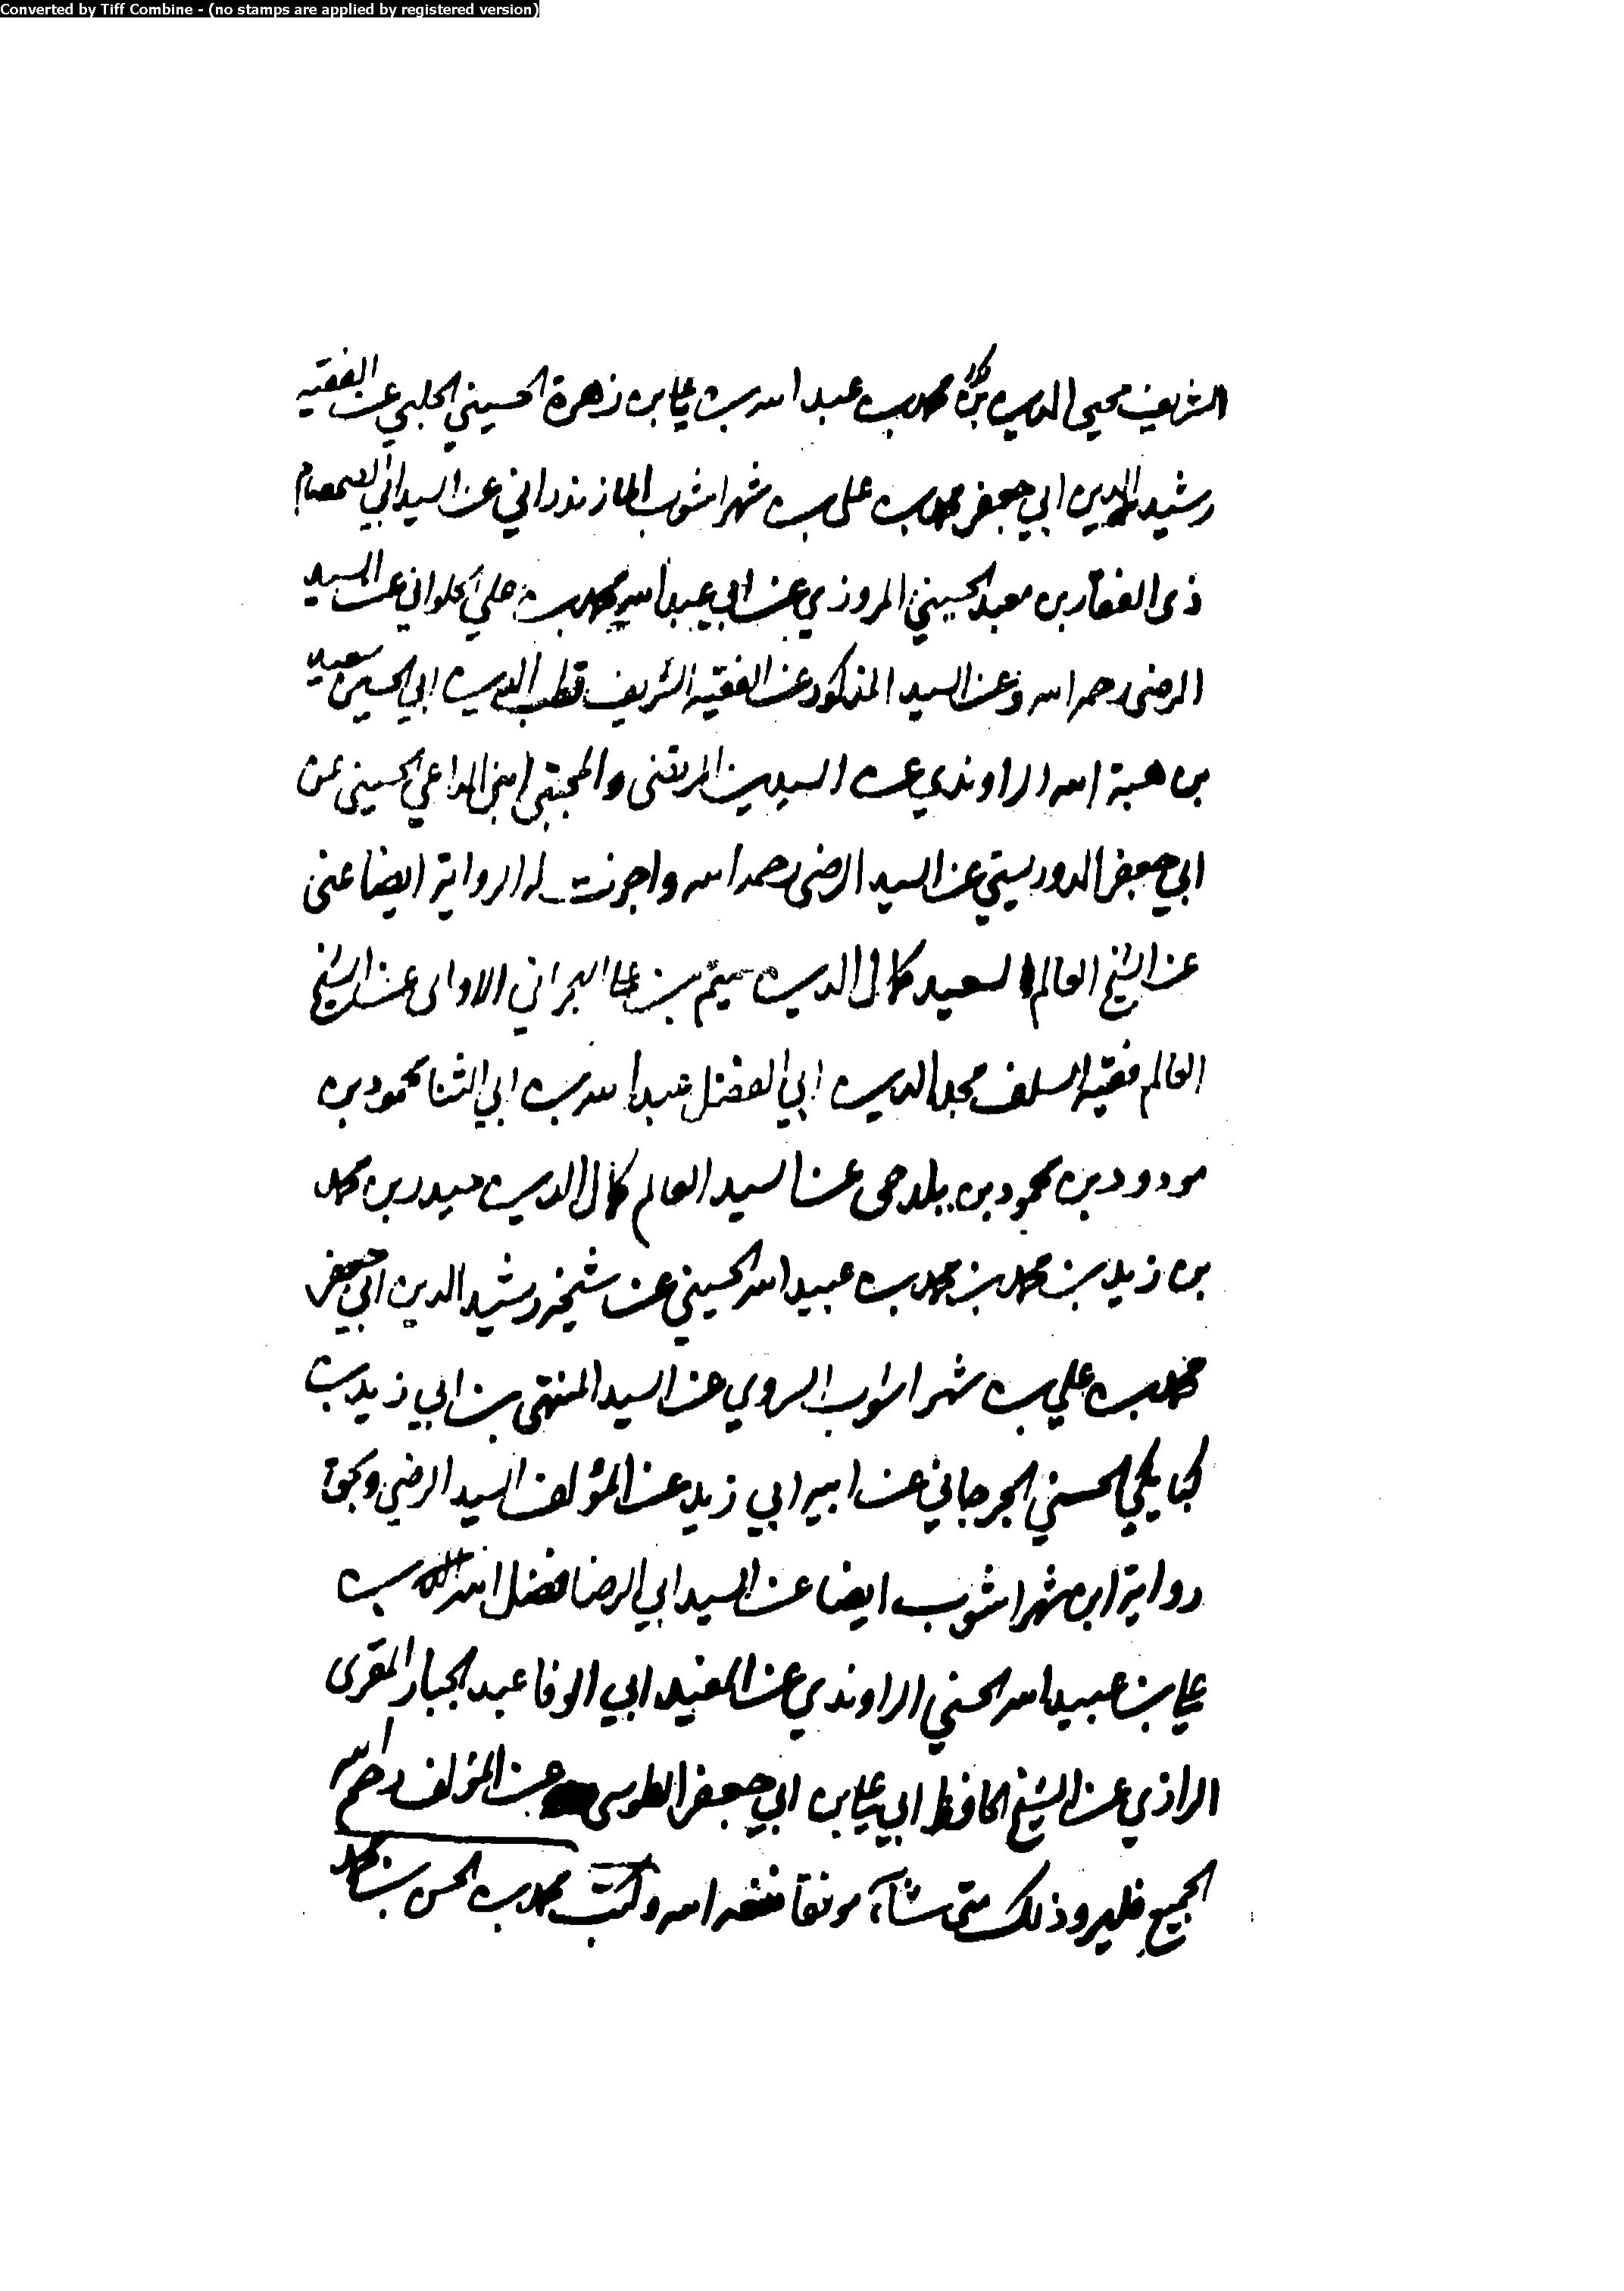 Converted by Tiff Combine - (no stamps are applied by registered version)
الشريف محيي الدين محمد بن عبد الله بن علي بن زهرة الحسيني الحلبي عن الفقيه
رشيد الدين ابي جعفر محمد بن علي بن شهراشوب المازندراني عن السيد ابي الصمصام
ذي الفقار بن معبد الحسيني المروزي عن ابي عبد الله محمد بن علي الحلواني عن السيد
الرضى رحمه الله وعن السيد المذكور عن الفقيه الشريف قطب الدين ابي الحسين سعيد
بن هبة الله الراوندي عن السيدين المرتضى والمجتبى ابني الداعي الحسيني عن
ابي جعفر الدوريستي عن السيد الرضى رحمه الله واجزت له الرواية ايضا عني
عن الشيخ العالم السعيد كمال الدين ميثم بن علي البحراني الاوالى عن الشيخ
العالم فقيه السلف مجد الدين ابي الفضل عبد الله بن ابي الثنا محمود بن
مودود بن محمود بن بلدجى عن السيد العالم كمال الدين حيدر بن محمد
بن زيد بن محمد بن محمد بن عبيد الله الحسيني عن شيخه رشيد الدين ابي جعفر
محمد بن علي بن شهراشوب السروي عن السيد المنتهى بن ابي زيد بن
كيايكي الحسني الجرجاني عن ابيه ابي زيد عن المؤلف السيد الرضي وبحق
رواية ابن شهراشوب ايضا عن السيد ابي الرضا فضل الله بن
علي بن عبيد الله الحسني الراوندي عن المفيد ابي الوفا عبد الجبار المقرى
الرازي عن الشيخ الحافظ ابي علي بن ابي جعفر الطوسى عن المؤلف رحم الله
الجميع فليرو ذلك متى شآء موفقا نفعه الله وكتب محمد بن الحسن بن محمد